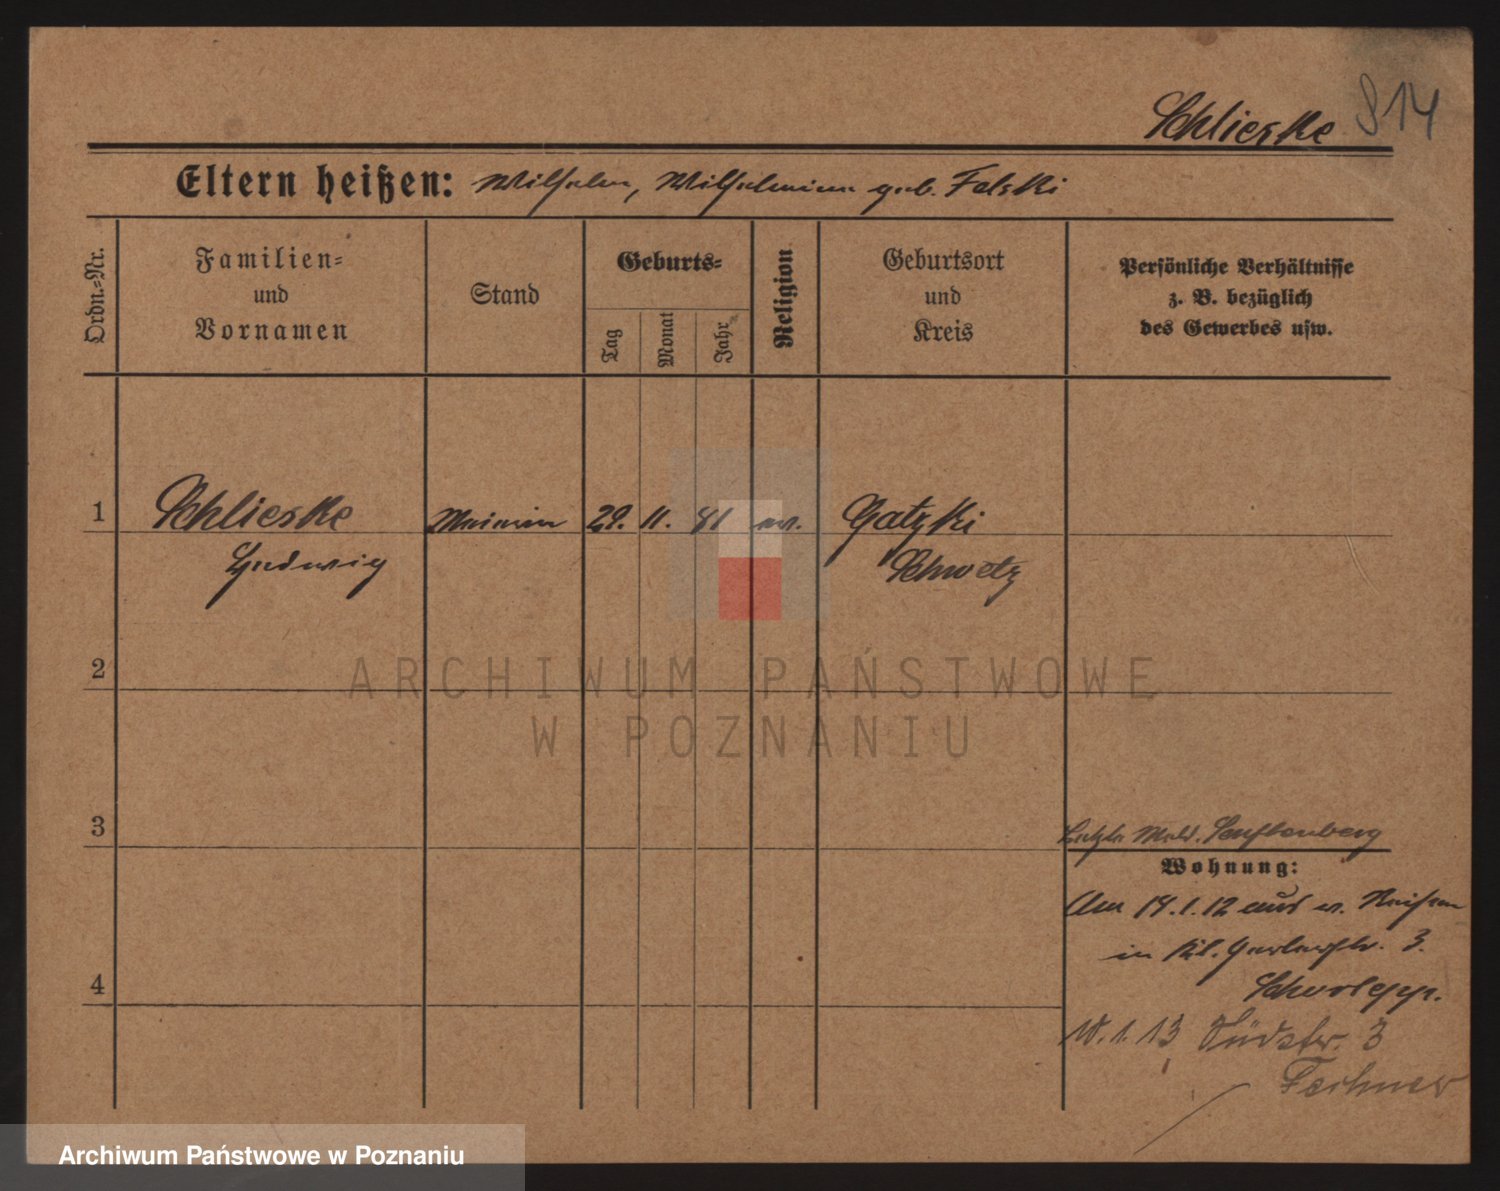 Schlieske 814
Eltern heißen: Wilhelm, Wilhelmine geb. Falski
Ordn.=Nr.
Familien=
und
Vornamen
Stand
Geburts=
Tag
Monat
Jahr
Religion
Geburtsort
und
Kreis
Persönliche Verhältnisse
z. B. bezüglich
des Gewerbes usw.
1 Schlieske 29. 11. 81 ev. Gatzki
Ludwig Schwetz
ARCHIWUM PAŃSTWOWE
2
W POZNANIU
3
Letzte Meld. Senftenberg
Wohnung:
Am 14.1.12 aus
in Kl. Gerberstr. 3.
4
10.1.13 Südstr. 3
Fechner
Archiwum Państwowe w Poznaniu